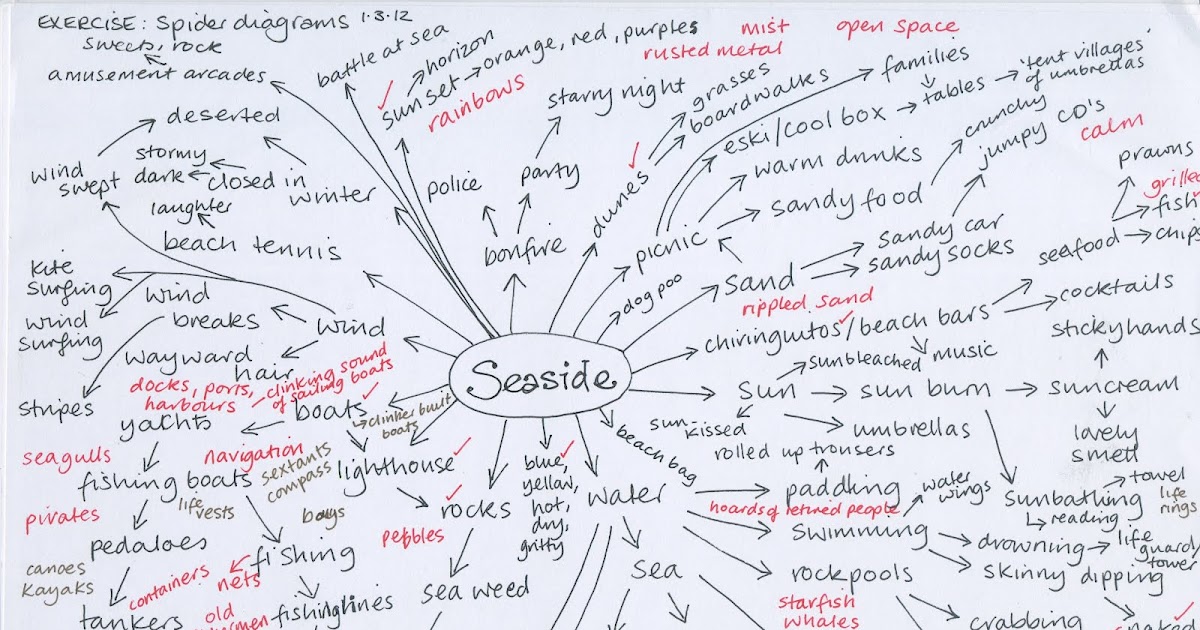 EXERCISE: Spider diagrams 1.3.12
sweets, rock
amusement arcades
battle at sea
horizon
sunset
orange, red, purples
rainbows
mist
open space
rusted metal
starry night
grasses
boardwalks
families
tables
'tent villages'
of umbrellas
eski/cool box
crunchy
jumpy CD's
calm
warm drinks
sandy food
prawns
grilled
fish
chips
seafood
deserted
stormy
dark
closed in
winter
wind
swept
laughter
beach tennis
police
party
bonfire
dunes
picnic
dog poo
sand
rippled sand
sandy car
sandy socks
kite
surfing
wind
surfing
wind
breaks
wind
wayward
hair
stripes
chiringuitos/beach bars
cocktails
music
Seaside
sunbleached
sun
sun burn
suncream
stickyhands
lovely
smell
docks, ports,
harbours
clinking sound
of sailing boats
boats
clinker built
boats
yachts
seagulls
navigation
sextants
compass
lighthouse
fishing boats
life
vests
pirates
pedaloes
canoes
kayaks
tankers
containers
nets
fishing
old
fishinglines
rocks
pebbles
sea weed
blue,
yellow,
hot,
dry,
gritty
beach bag
sun-kissed
umbrellas
rolled up trousers
water
paddling
hoards of retired people
water
wings
swimming
sunbathing
towel
reading
life
rings
drowning
life
guard
tower
skinny dipping
rockpools
sea
starfish
whales
crabbing
naked